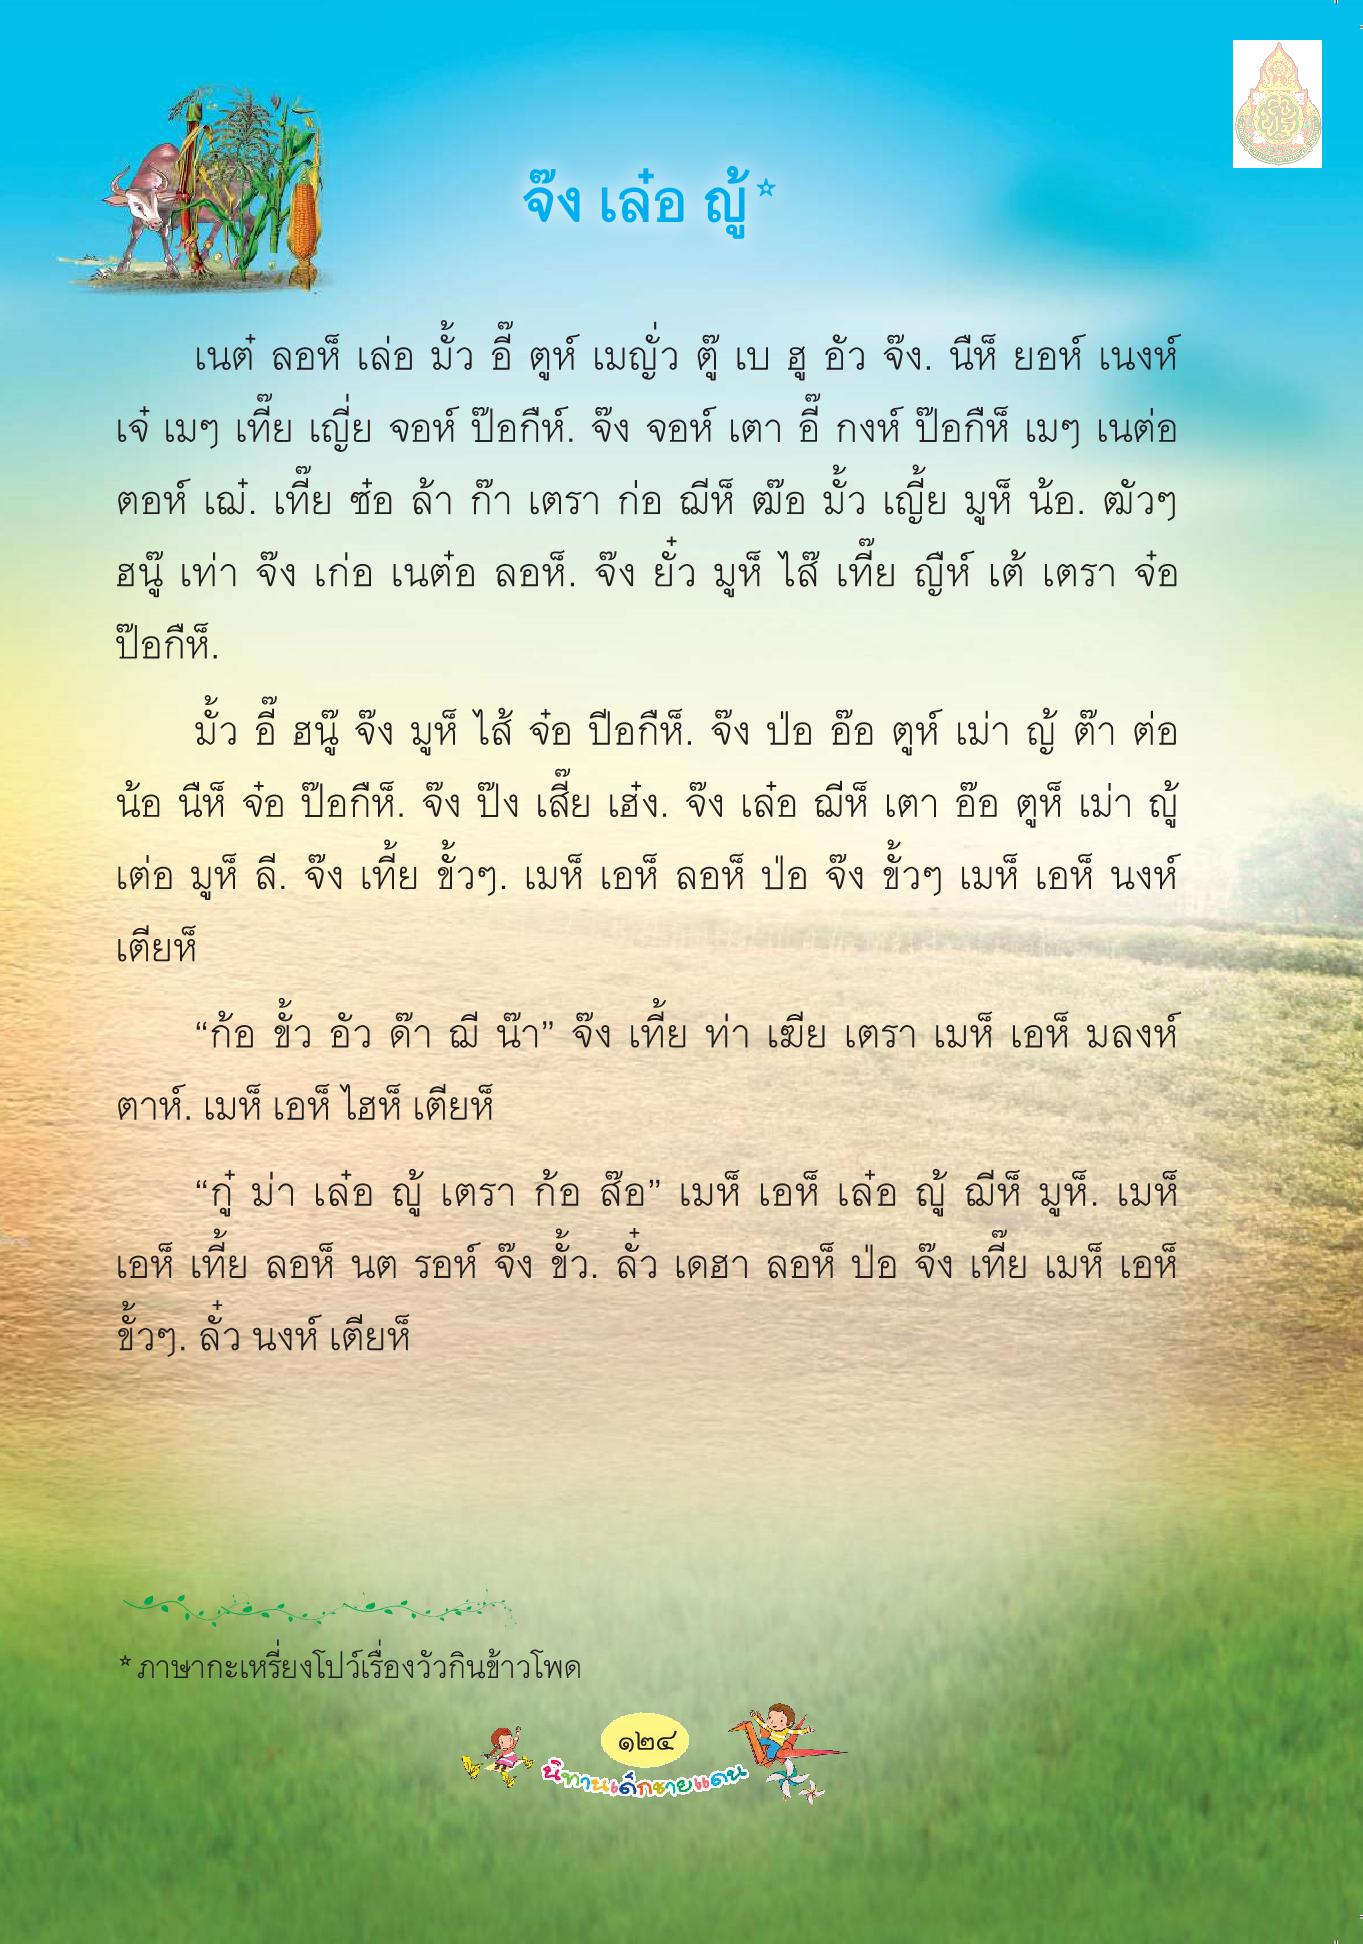 จ๊ง เล๋อ ญู้*
เนต๋ ลอห็ เล่อ มั้ว อี๊ ตูห์ เมญั่ว ตู๊ เบ ฮู อัว จ๊ง. นืห็ ยอห์ เนงห์
เจ๋ เมๆ เที๊ย เญี่ย จอห์ ป๊อกืห์. จ๊ง จอห์ เตา อี๊ กงห์ ป๊อกืห็ เมๆ เนต่อ
ตอห์ เฌ๋. เที๊ย ซ๋อ ล้า ก๊า เตรา ก่อ ฌีห็ ฒ๊อ มั้ว เญี้ย มูห็ น้อ. ฒัวๆ
ฮนู๊ เท่า จ๊ง เก่อ เนต๋อ ลอห็. จ๊ง ยั๋ว มูห็ ไส๊ เที๊ย ญืห์ เต้ เตรา จ๋อ
ป๊อกืห็.
มั้ว อี๊ ฮนู๊ จ๊ง มูห็ ไส้ จ๋อ ปีอกืห็. จ๊ง ป่อ อ๊อ ตูห์ เม่า ญ้ ต๊า ต่อ
น้อ นืห็ จ๋อ ป๊อกืห็. จ๊ง ป๊ง เสี๊ย เฮ๋ง. จ๊ง เล๋อ ฌีห็ เตา อ๊อ ตูห็ เม่า ญู้
เต่อ มูห็ ลี. จ๊ง เที้ย ขั้วๆ. เมห็ เอห็ ลอห็ ป่อ จ๊ง ขั้วๆ เมห็ เอห็ นงห์
เตียห็
“ก้อ ขั้ว อัว ด๊า ฌี น๊า” จ๊ง เที้ย ท่า เฆีย เตรา เมห็ เอห็ มลงห์
ตาห์. เมห็ เอห็ ไฮห็ เตียห็
“กู๋ ม่า เล๋อ ญู้ เตรา ก้อ ส๊อ” เมห็ เอห็ เล๋อ ญู้ ฌีห็ มูห็. เมห็
เอห็ เที้ย ลอห็ นต รอห์ จ๊ง ขั้ว. ลั๋ว เดฮา ลอห็ ป่อ จ๊ง เที๊ย เมห็ เอห็
ขั้วๆ. ลั๋ว นงห์ เตียห็
* ภาษากะเหรี่ยงโปว์เรื่องวัวกินข้าวโพด
๑๒๔
นิทานเด็กชายแดน